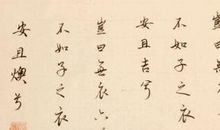 豈曰無衣
不如子之衣
安且吉兮
豈曰無衣六
不如子之衣
安且燠兮